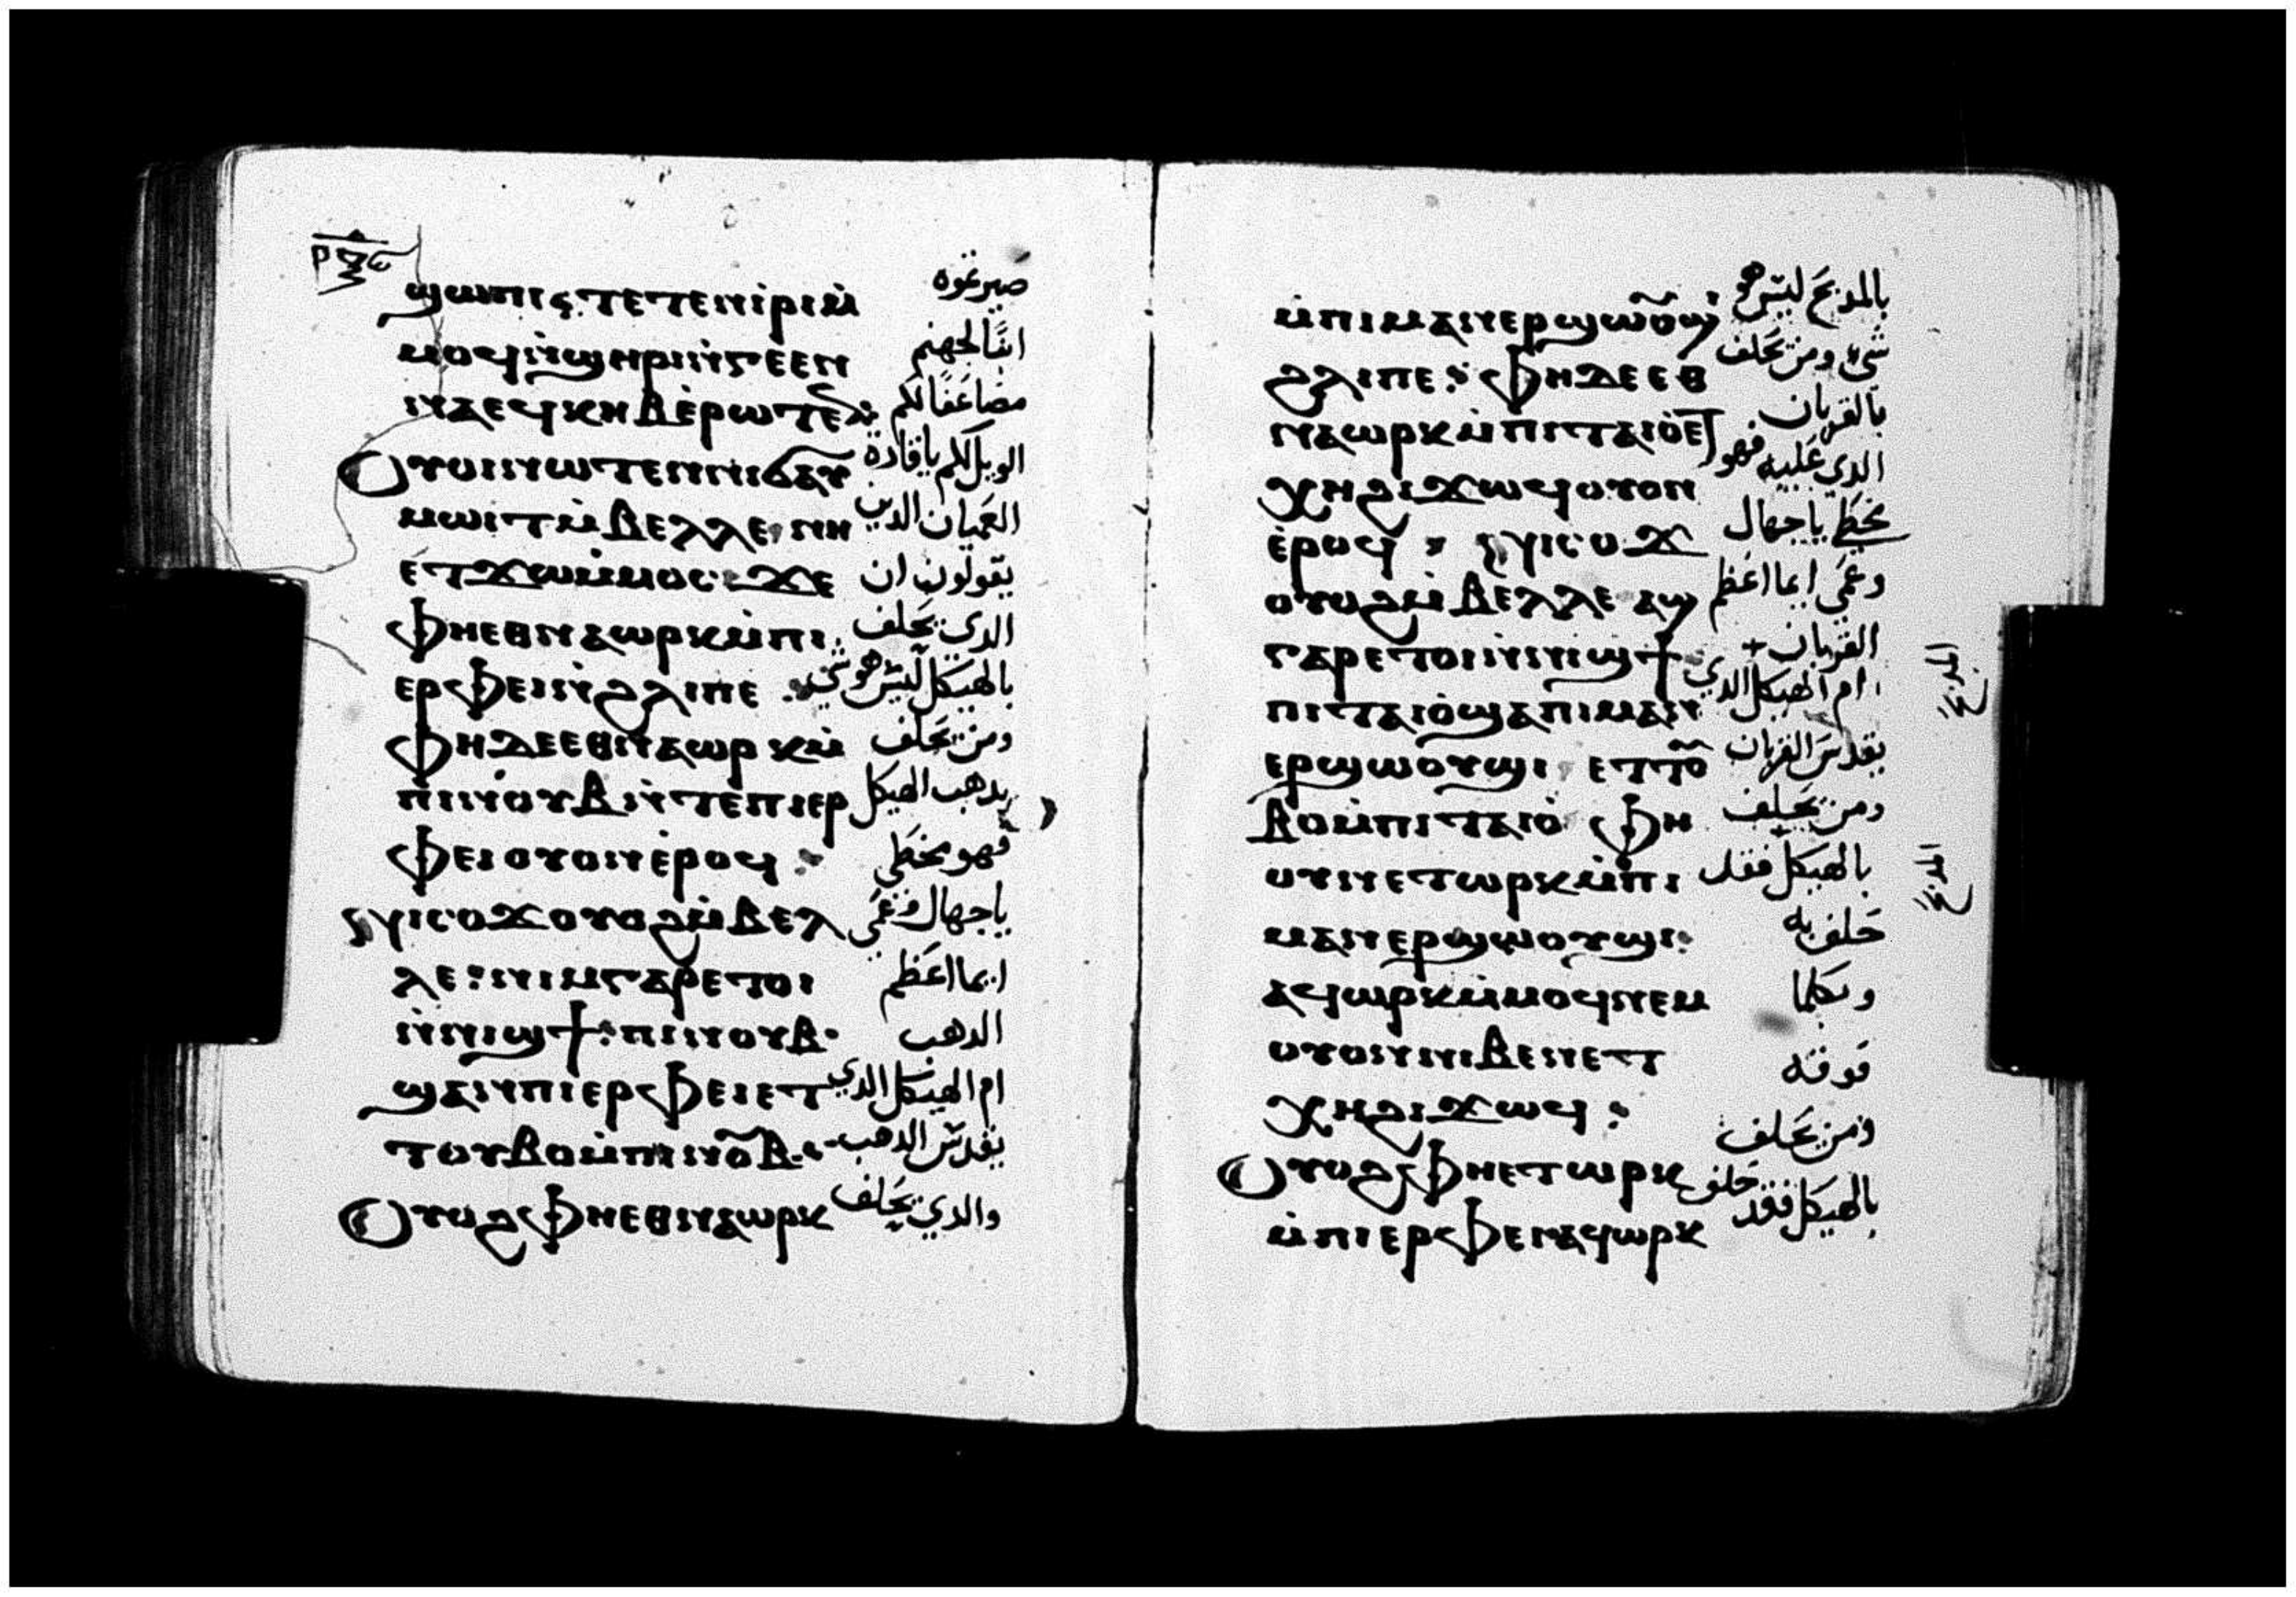 ϣⲱⲡⲓ ϣⲁⲧⲉⲧⲉⲛⲓ̀ⲣⲓ ⲙ̀
صيرتموه
ⲙⲟϥ ⲛ̀ϣⲏⲣⲓ ⲛ̀ⲅⲉⲉⲛ
ابنًا لجهنم
ⲛⲁ ⲉϥⲕⲏⲃ ⲉ̀ⲣⲱⲧⲉⲛ
مضاعفًا لكم
Ⲟⲩⲟⲓ ⲛⲱⲧⲉⲛ ⲛⲓϭⲁⲩ
الويل لكم يا قادة
ⲙⲱⲓⲧ ⲙ̀ⲃⲉⲗⲗⲉ ⲛⲏ
العميان الدين
ⲉⲧϫⲱ ⲙ̀ⲙⲟⲥ ϫⲉ
يقولون ان
ⲫⲏ ⲉⲑⲛⲁⲱⲣⲕ ⲙ̀ⲡⲓ
الدي يحلف
ⲉⲣⲫⲉⲓ ⲛ̀ϩⲗⲓ ⲡⲉ
بالهيكل ليس هو شي
ⲫⲏ ⲇⲉ ⲉⲑⲛⲁⲱⲣⲕ ⲙ̀
ومن يحلف
ⲡⲓⲛⲟⲩⲃ ⲛ̀ⲧⲉ ⲡⲓⲉⲣ
بدهب الهيكل
ⲫⲉⲓ ⲟⲩⲟⲛ ⲉ̀ⲣⲟϥ
فهو مخطي
ⲛⲓⲥⲟϫ ⲟⲩⲟϩ ⲙ̀ⲃⲉⲗ
يا جهال وعمي
ⲗⲉ ⲛⲓⲙ ⲅⲁⲣ ⲉⲧⲟⲓ
ايما اعظم
ⲛ̀ⲛⲓϣϯ ⲡⲓⲛⲟⲩⲃ
الدهب
ϣⲁⲛ ⲡⲓⲉⲣⲫⲉⲓ ⲉⲧ
ام الهيكل الدي
ⲧⲟⲩⲃⲟ ⲙ̀ⲡⲓⲛⲟⲩⲃ
يقدس الدهب
Ⲟⲩⲟϩ ⲫⲏ ⲉⲑⲛⲁⲱⲣⲕ
والدي يحلف
ⲙ̀ⲡⲓⲙⲁⲛⲉⲣϣⲱⲟⲩϣⲓ
بالمدبح ليس هو
ϩⲗⲓ ⲡⲉ ⲫⲏ ⲇⲉ ⲉⲑ
شي ومن يحلف
ⲛⲁⲱⲣⲕ ⲙ̀ⲡⲓⲧⲁⲓⲟ ⲉⲧ
بالقربان
ⲭⲏ ϩⲓϫⲱϥ ⲟⲩⲟⲛ
الدي عليه فهو
ⲉ̀ⲣⲟϥ ⲛⲓⲥⲟϫ
مخطي يا جهال
ⲟⲩⲟϩ ⲙ̀ⲃⲉⲗⲗⲉ ⲁϣ
وعمي ايما اعظم
ⲅⲁⲣ ⲉⲧⲟⲓ ⲛ̀ⲛⲓϣϯ
القربان
ⲡⲓⲧⲁⲓⲟ ϣⲁ ⲡⲓⲙⲁⲛ
ام الهيكل الدي
المدبح
ⲉⲣϣⲱⲟⲩϣⲓ ⲉⲧⲧⲟⲩ
يقدس القربان
ⲃⲟ ⲙ̀ⲡⲓⲧⲁⲓⲟ ⲫⲏ
ومن يحلف
ⲟⲩⲛ ⲉⲧⲱⲣⲕ ⲙ̀ⲡⲓ
بالهيكل فقد
المدبح
ⲙⲁⲛⲉⲣϣⲱⲟⲩϣⲓ
حلف به
ⲁϥⲱⲣⲕ ⲙ̀ⲙⲟϥ ⲛⲉⲙ
وبكلما
ⲟⲩⲟⲛ ⲛⲓⲃⲉⲛ ⲉⲧ
فوقه
ⲭⲏ ϩⲓϫⲱϥ
ومن يحلف
Ⲟⲩⲟϩ ⲫⲏ ⲉⲧⲱⲣⲕ
بالهيكل فقد حلف
ⲙ̀ⲡⲓⲉⲣⲫⲉⲓ ⲁϥⲱⲣⲕ